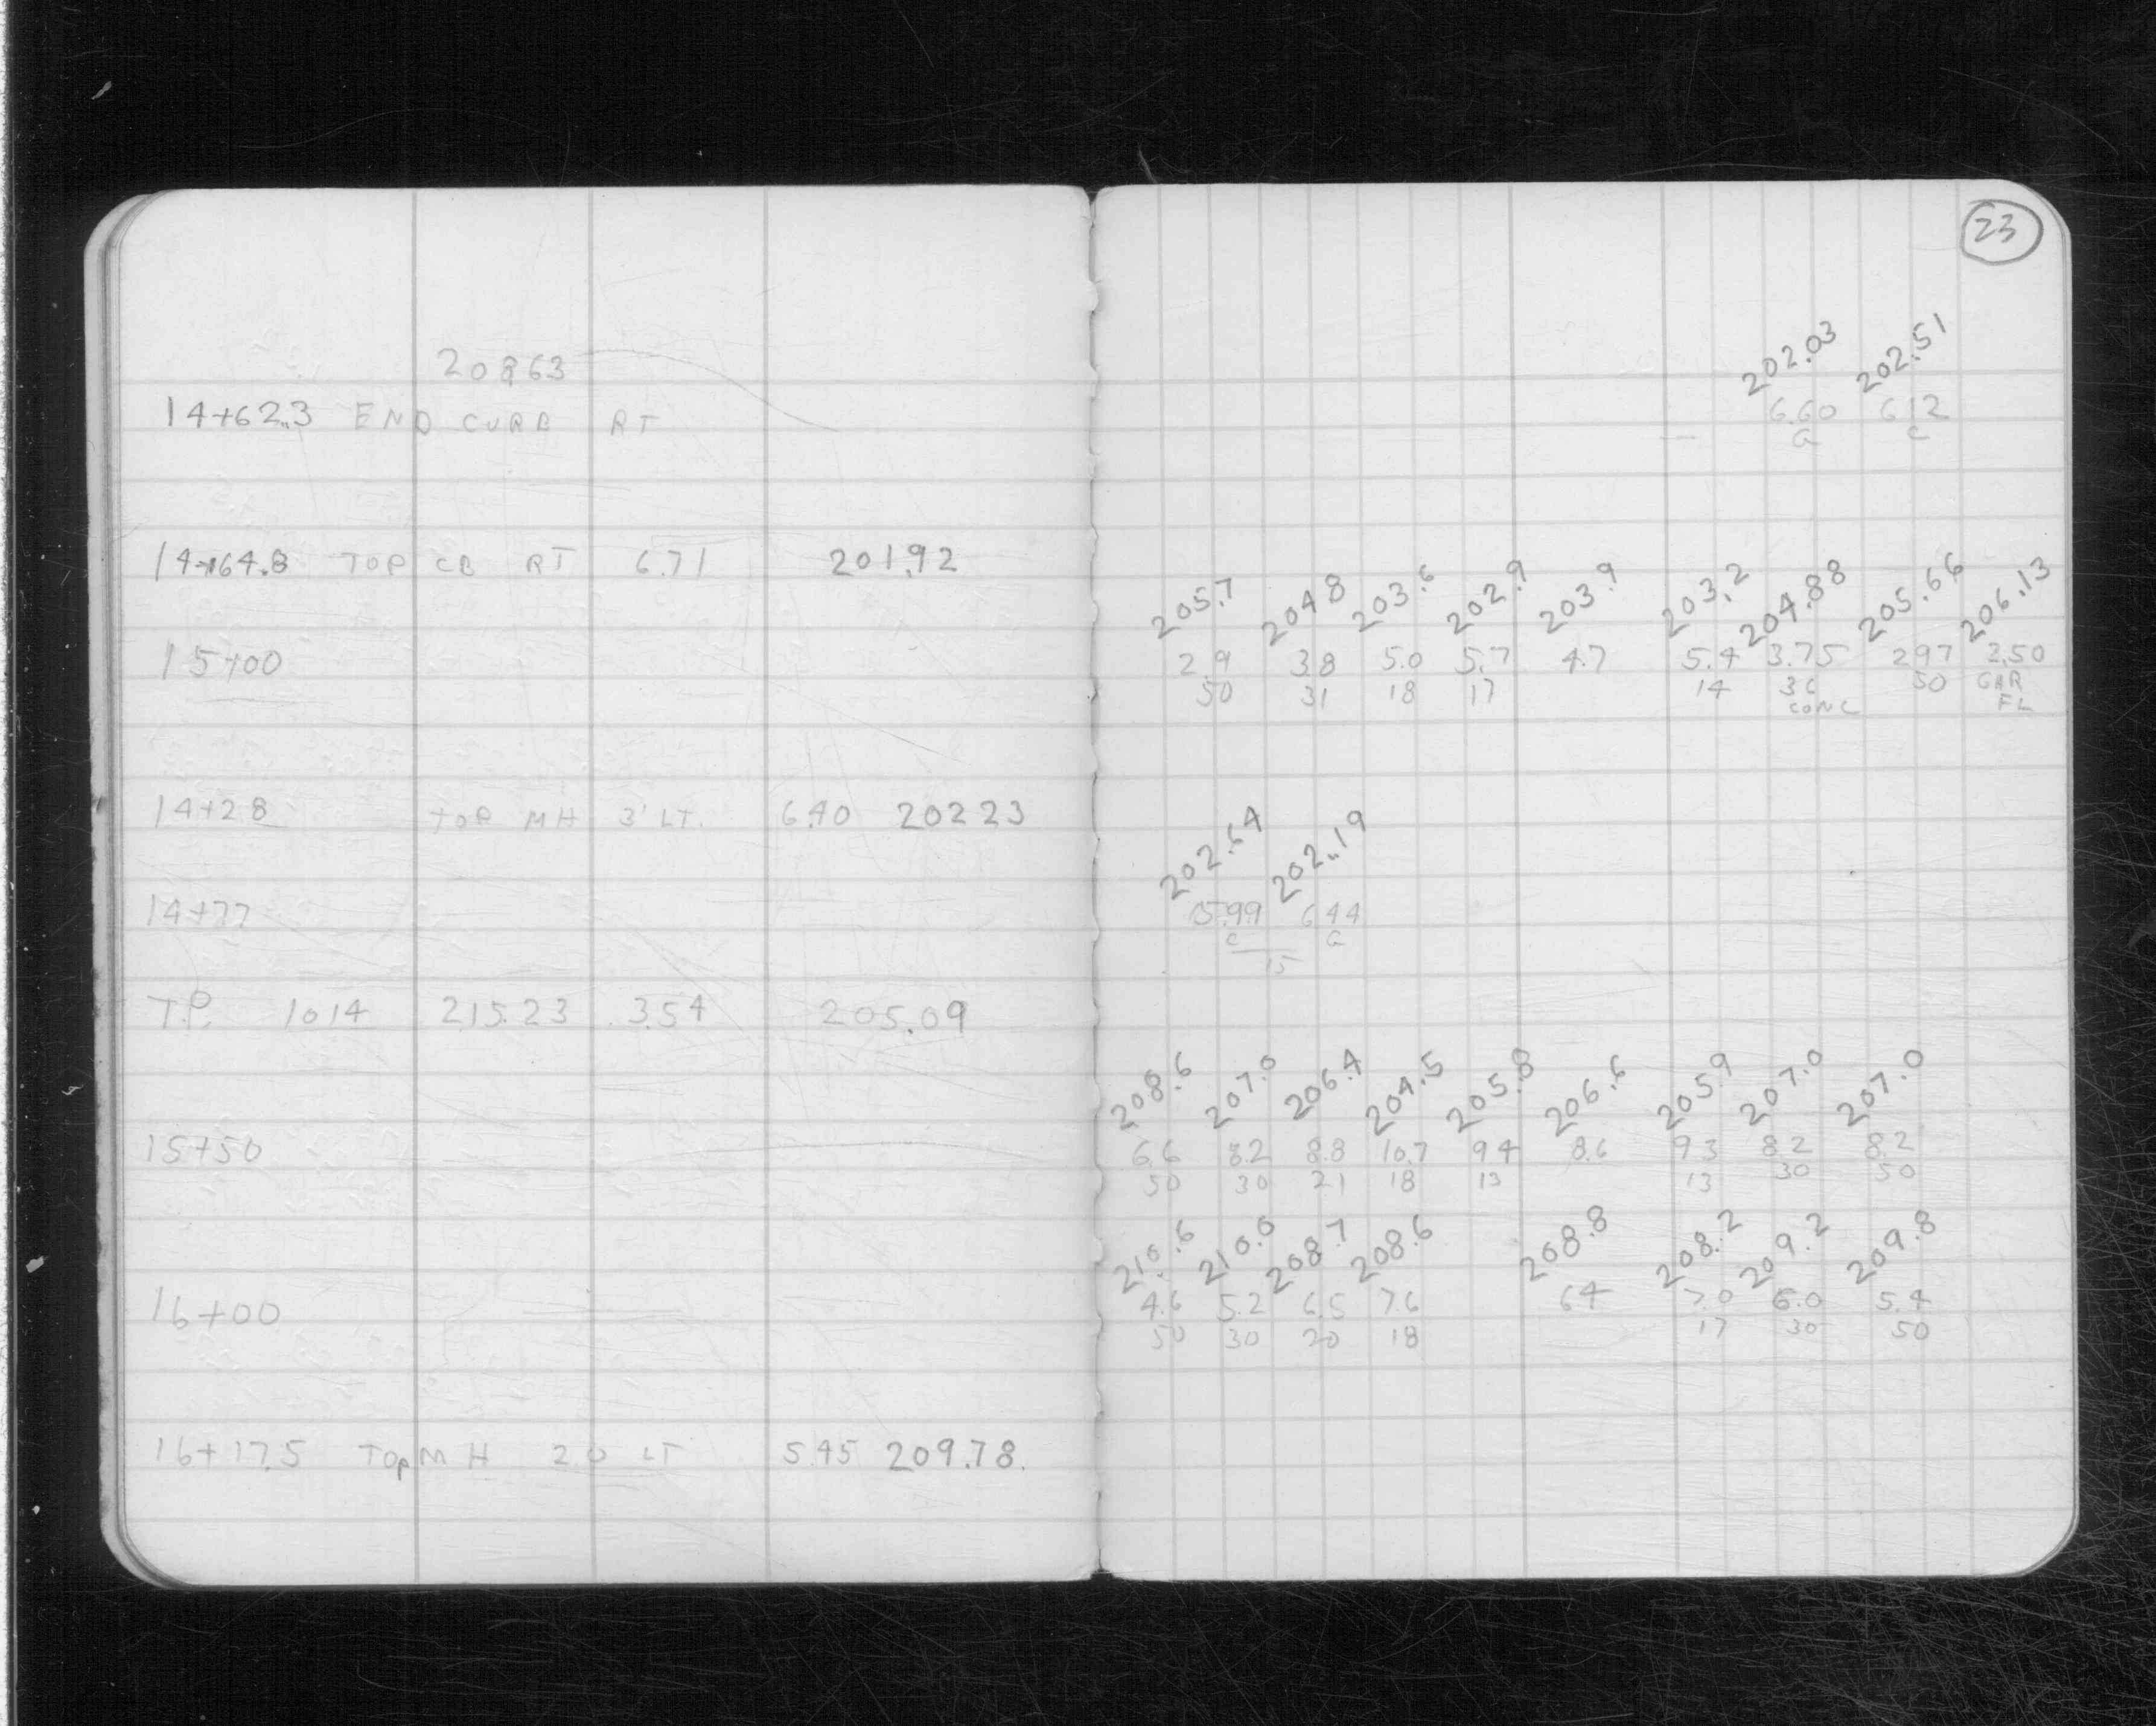 23
20863
202.03 202.51
14+62.3 END CURB RT 6.60 6.12
G C
14+64.8 TOP CB RT 6.71 201.92
205.7 204.8 203.6 202.9 203.9 203.2 204.88 205.66 206.13
15+00 2.9 3.8 5.0 5.7 4.7 5.4 3.75 2.97 2.50
50 31 18 17 14 36 50 GAR
CONC FL
14+28 TOP MH 3' LT. 6.40 202 23
202.64 202.19
14+77 5.99 6.44
C G
15
T.P. 10 14 215.23 3.54 205.09
208.6 207.0 206.4 204.5 205.8 206.6 205.9 207.0 207.0
15+50 6.6 8.2 8.8 10.7 9.4 8.6 9.3 8.2 8.2
50 30 21 18 13 13 30 50
210.6 210.0 208.7 208.6 208.8 208.2 209.2 209.8
16+00 4.6 5.2 6.5 7.6 6.4 7.0 6.0 5.4
50 30 20 18 17 30 50
16+17.5 Top MH 2.0 LT 5.45 209.78.